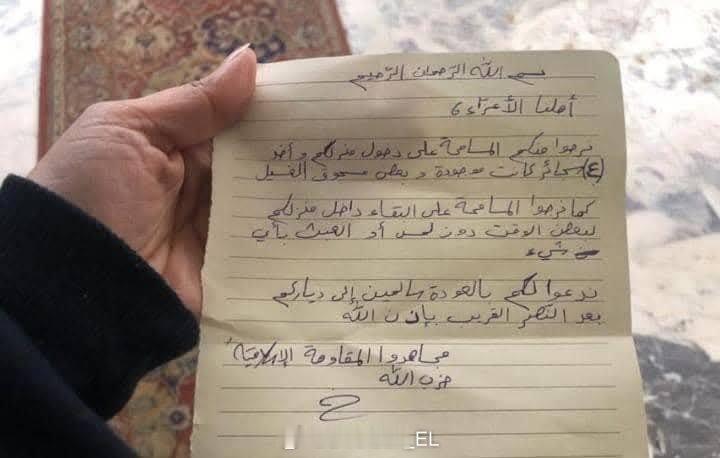 بسم الله الرحمان الرحيم
أهلنا الأعزاء،
نرجوا منكم المسامحة على دخول منزلكم و أخذ
(٤) سجائر كانت موجودة و بعض مسحوق الغسيل
كما نرجوا المسامحة على البقاء داخل منزلكم
لبعض الوقت دون لمس أو العبث بأي
شيء
ندعوا لكم بالعودة سالمين إلى دياركم
بعد النصر القريب بإذن الله
مجاهدوا المقاومة الإسلامية
حزب الله
_EL